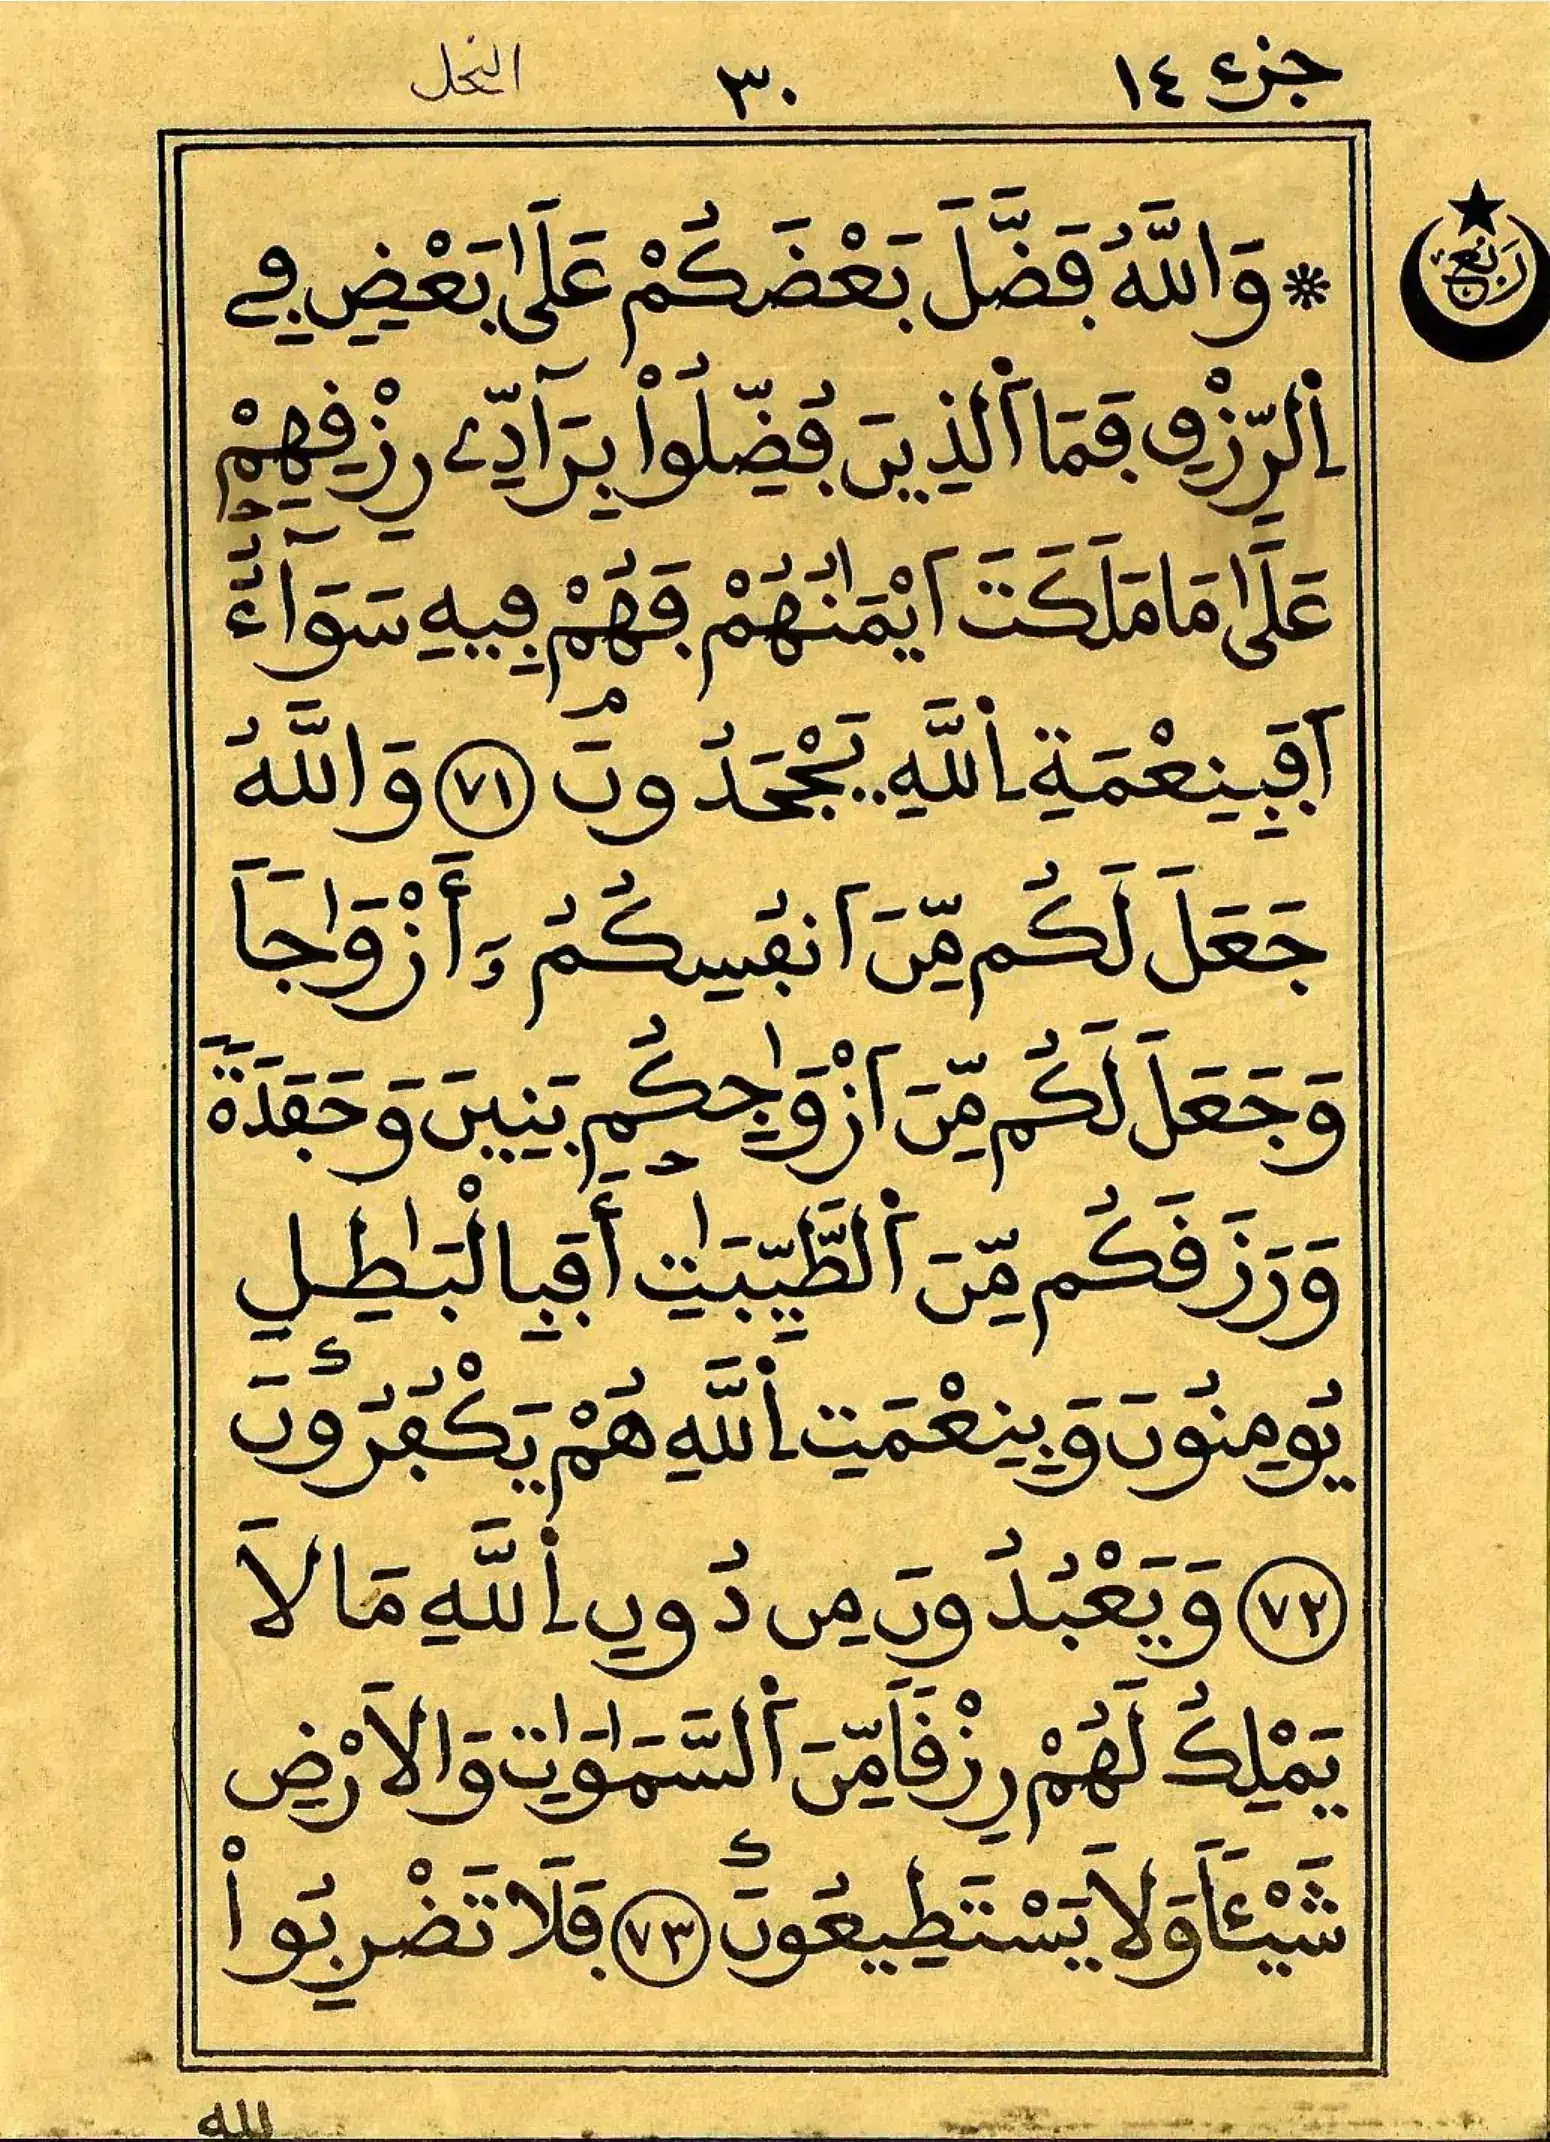 جزء ١٤ ٣٠ النحل
ربع
* وَاللَّهُ فَضَّلَ بَعْضَكُمْ عَلَىٰ بَعْضٍ فِے
اِ۬لرِّزْقِ فَمَا اَ۬لذِينَ فُضِّلُواْ بِرَآدِّے رِزْقِهِمْ
عَلَىٰ مَا مَلَكَتَ اَيْمَٰنُهُمْ فَهُمْ فِيهِ سَوَآءٌ
اَفَبِنِعْمَةِ اِ۬للَّهِ يَجْحَدُونَ ٧١ وَاللَّهُ
جَعَلَ لَكُم مِّنَ اَنفُسِكُمُ وَ أَزْوَٰجاً
وَجَعَلَ لَكُم مِّنَ اَزْوَٰجِكُم بَنِينَ وَحَفَدَةً
وَرَزَقَكُم مِّنَ اَ۬لطَّيِّبَٰتِ أَفَبِالْبَٰطِلِ
يُومِنُونَ وَبِنِعْمَتِ اِ۬للَّهِ هُمْ يَكْفُرُونَ
٧٢ وَيَعْبُدُونَ مِن دُونِ اِ۬للَّهِ مَا لاَ
يَمْلِكُ لَهُمْ رِزْقاً مِّنَ اَ۬لسَّمَٰوَٰتِ وَالاَرْضِ
شَيْـٔاً وَلاَ يَسْتَطِيعُونَ ٧٣ فَلَا تَضْرِبُواْ
لله